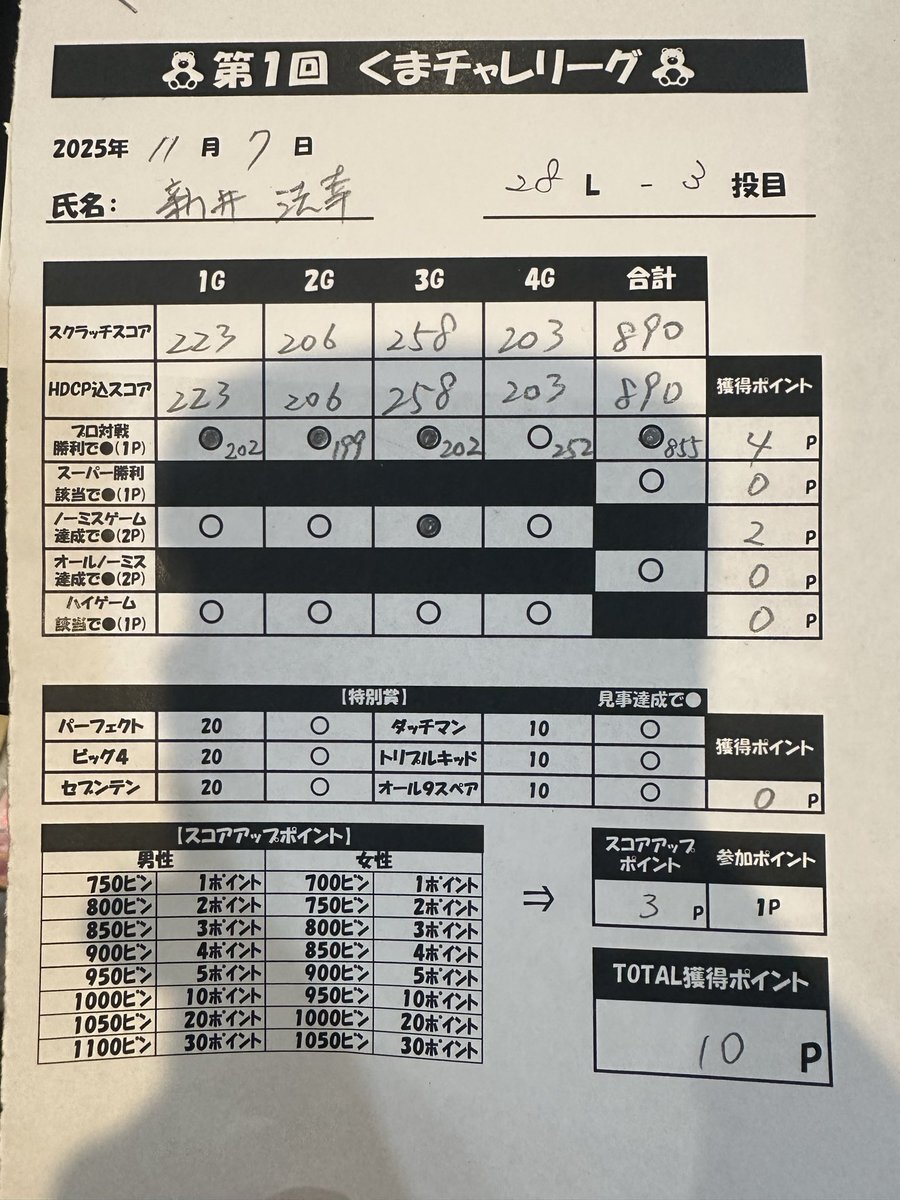 第1回 くまチャレリーグ
2025年 11月 7日
氏名: 新井 法幸
28 L - 3 投目
1G 2G 3G 4G 合計
スクラッチスコア 223 206 258 203 890
HDCP込スコア 223 206 258 203 890 獲得ポイント
プロ対戦
勝利で●(1P) ● 202 ● 199 ● 202 ○ 252 ● 855 4 P
スーパー勝利
該当で●(1P) ○ 0 P
ノーミスゲーム
達成で●(2P) ○ ○ ● ○ 2 P
オールノーミス
達成で●(2P) ○ 0 P
ハイゲーム
該当で●(1P) ○ ○ ○ ○ 0 P
【特別賞】 見事達成で●
パーフェクト 20 ○ ダッチマン 10 ○ 獲得ポイント
ビッグ4 20 ○ トリプルキッド 10 ○
セブンテン 20 ○ オール9スペア 10 ○ 0 P
【スコアアップポイント】
男性 女性
750ピン 1ポイント 700ピン 1ポイント
800ピン 2ポイント 750ピン 2ポイント
850ピン 3ポイント 800ピン 3ポイント
900ピン 4ポイント 850ピン 4ポイント
950ピン 5ポイント 900ピン 5ポイント
1000ピン 10ポイント 950ピン 10ポイント
1050ピン 20ポイント 1000ピン 20ポイント
1100ピン 30ポイント 1050ピン 30ポイント
⇒
スコアアップ
ポイント 参加ポイント
3 P 1P
TOTAL獲得ポイント
10 P